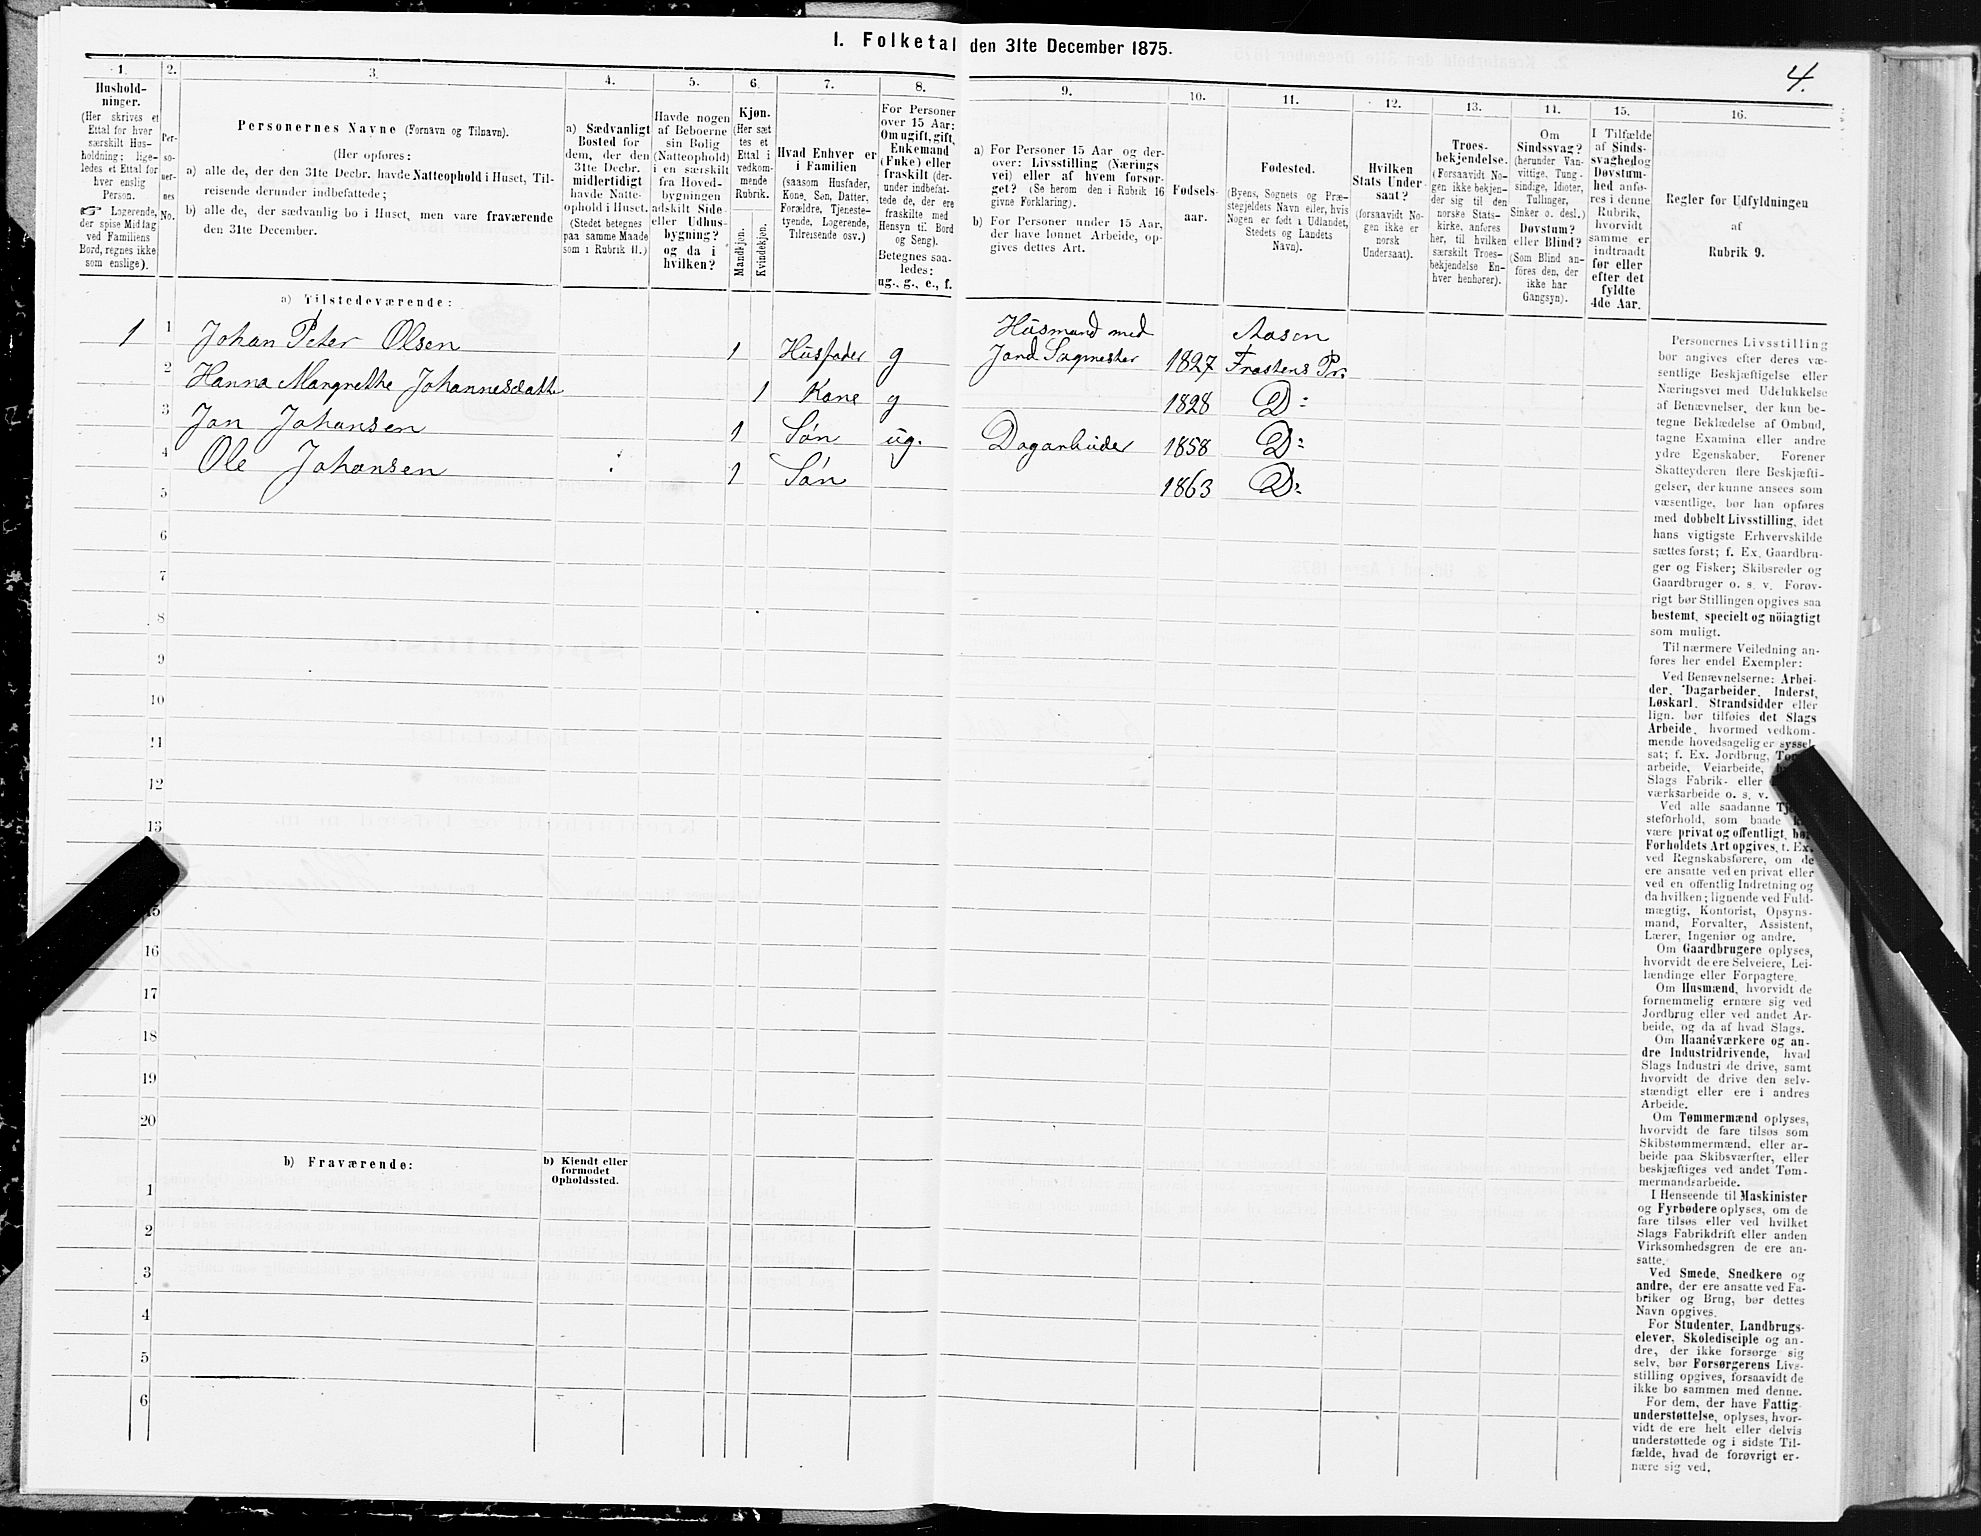 1. Folketal den 31te December 1875.
4.
1.
Hushold-
ninger.
(Her skrives et
Ettal for hver
særskilt Hus-
holdning; lige-
ledes et Ettal for
hver enslig
Person.
☞ Logerende,
der spise Middag
ved Familiens
Bord, regnes ikke
som enslige).
2.
Per-
so-
ner-
nes
No.
3.
Personernes Navne (Fornavn og Tilnavn).
(Her opføres:
a) alle de, der den 31te Decbr. havde Natteophold i Huset, Til-
reisende derunder indbefattede;
b) alle de, der sædvanlig bo i Huset, men vare fraværende
den 31te December.
4.
a) Sædvanligt
Bosted for
dem, der den
31te Decbr.
midlertidigt
havde Natte-
ophold i Huset.
(Stedet betegnes
paa samme Maade
som i Rubrik 11.)
5.
Havde nogen
af Beboerne
sin Bolig
(Natteophold)
i en særskilt
fra Hoved-
bygningen
adskilt Side-
eller Udhus-
bygning?
og da i
hvilken?
6.
Kjøn.
(Her sæt
tes et
Ettal i
vedkom-
mende
Rubrik.
Mandkjøn.
Kvindekjøn.
7.
Hvad Enhver er
i Familien
(saasom Husfader,
Kone, Søn, Datter,
Forældre, Tjeneste-
tyende, Logerende,
Tilreisende osv.)
8.
For Personer
over 15 Aar:
Om ugift, gift,
Enkemand
(Enke) eller
fraskilt (der-
under indbefat-
tede de, der ere
fraskilte med
Hensyn til Bord
og Seng).
Betegnes saa-
ledes:
ug., g., e., f.
9.
a) For Personer 15 Aar og der-
over: Livsstilling (Nærings
vei) eller af hvem forsør-
get? (Se herom den i Rubrik 16
givne Forklaring).
b) For Personer under 15 Aar,
der have lønnet Arbeide, op-
gives dettes Art.
10.
Fødsels-
aar.
11.
Fødested.
(Byens, Sognets og Præ-
stegjeldets Navn eller, hvis
Nogen er født i Udlandet,
Stedets og Landets
Navn).
12.
Hvilken
Stats Under-
saat?
(forsaavidt No-
gen ikke er
norsk
Undersaat).
13.
Troes-
bekjendelse.
(Forsaavidt No-
gen ikke bekjen-
der sig til den
norske Stats-
kirke, anføres
her, til hvilken
særskilt Troes-
bekjendelse En-
hver henhører).
14.
Om
Sindssvag?
(herunder Van-
vittige, Tung-
sindige, Idioter,
Tullinger,
Sinker o. desl.)
Døvstum?
eller Blind?
(Som Blind an-
føres den, der
ikke har
Gangsyn).
15.
I Tilfælde
af Sinds-
svaghed og
Døvstum-
hed anfø-
res i denne
Rubrik,
hvorvidt
samme er
indtraadt
før eller
efter det
fyldte
4de Aar.
16.
Regler for Udfyldningen
af
Rubrik 9.
a) Tilstedeværende:
1 1 Johan Peter Olsen 1 Husfader g Husmand med Jord Sagmester 1827 Aasen Frostens Pr.
2 Hanna Margrethe Johannesdatte 1 Kone g 1828 D:
3 Jon Johansen 1 Søn ug. Dagarbeider 1858 D:
4 Ole Johansen 1 Søn 1863 D:
5
6
7
8
9
10
11
12
13
15
16
17
18
19
20
b) Fraværende:
b) Kjendt eller
formodet
Opholdssted.
1
2
3
4
5
6
Personernes Livsstilling
bør angives efter deres væ-
sentlige Beskjæftigelse eller
Næringsvei med Udelukkelse
af Benævnelser, der kun be-
tegne Beklædelse af Ombud,
tagne Examina eller andre
ydre Egenskaber. Forener
Skatteyderen flere Beskjæfti-
gelser, der kunne ansees som
væsentlige, bør han opføres
med dobbelt Livsstilling, idet
hans vigtigste Erhvervskilde
sættes først; f. Ex. Gaardbru-
ger og Fisker; Skibsreder og
Gaardbruger o. s. v. Forøv-
rigt bør Stillingen opgives saa
bestemt, specielt og nöiagtigt
som muligt.
Til nærmere Veiledning an-
føres her endel Exempler:
Ved Benævnelserne: Arbei-
der, Dagarbeider, Inderst,
Løskarl, Strandsidder eller
lign. bør tilføies det Slags
Arbeide, hvormed vedkom-
mende hovedsagelig er syssel-
sat; f. Ex. Jordbrug,
arbeide, Veiarbeide,
Slags Fabrik- eller
værksarbeide o. s. v.
Ved alle saadanne
steforhold, som baade
være privat og offentligt, bør
Forholdets Art opgives, f. Ex.
ved Regnskabsførere, om de
ere ansatte ved en privat eller
ved en offentlig Indretning og
da hvilken; lignende ved Fuld-
mægtig, Kontorist, Opsyns-
mand, Forvalter, Assistent,
Lærer, Ingeniør og andre.
Om Gaardbrugere oplyses,
hvorvidt de ere Selveiere, Lei-
lændinge eller Forpagtere.
Om Husmænd, hvorvidt de
fornemmelig ernære sig ved
Jordbrug eller ved andet Ar-
beide, og da af hvad Slags.
Om Haandværkere og an-
dre Industridrivende, hvad
Slags Industri de drive, samt
hvorvidt de drive den selv-
stændigt eller ere i andres
Arbeide.
Om Tømmermænd oplyses,
hvorvidt de fare tilsøs som
Skibstømmermænd, eller ar-
beide paa Skibsværfter, eller
beskjæftiges ved andet Tøm-
mermandsarbeide.
I Henseende til Maskinister
og Fyrbødere oplyses, om de
fare tilsøs eller ved hvilket
Slags Fabrikdrift eller anden
Virksomhedsgren de ere an-
satte.
Ved Smede, Snedkere og
andre, der ere ansatte ved Fa-
briker og Brug, bør dettes
Navn opgives.
For Studenter, Landbrugs-
elever, Skoledisciple og an-
dre, der ikke forsørge sig
selv, bør Forsørgerens Livs-
stilling opgives, forsaavidt de
ikke bo sammen med denne.
For dem, der have Fattig-
understøttelse, oplyses, hvor-
vidt de ere helt eller delvis
understøttede og i sidste Til-
fælde, hvad de forøvrigt er-
nære sig ved.